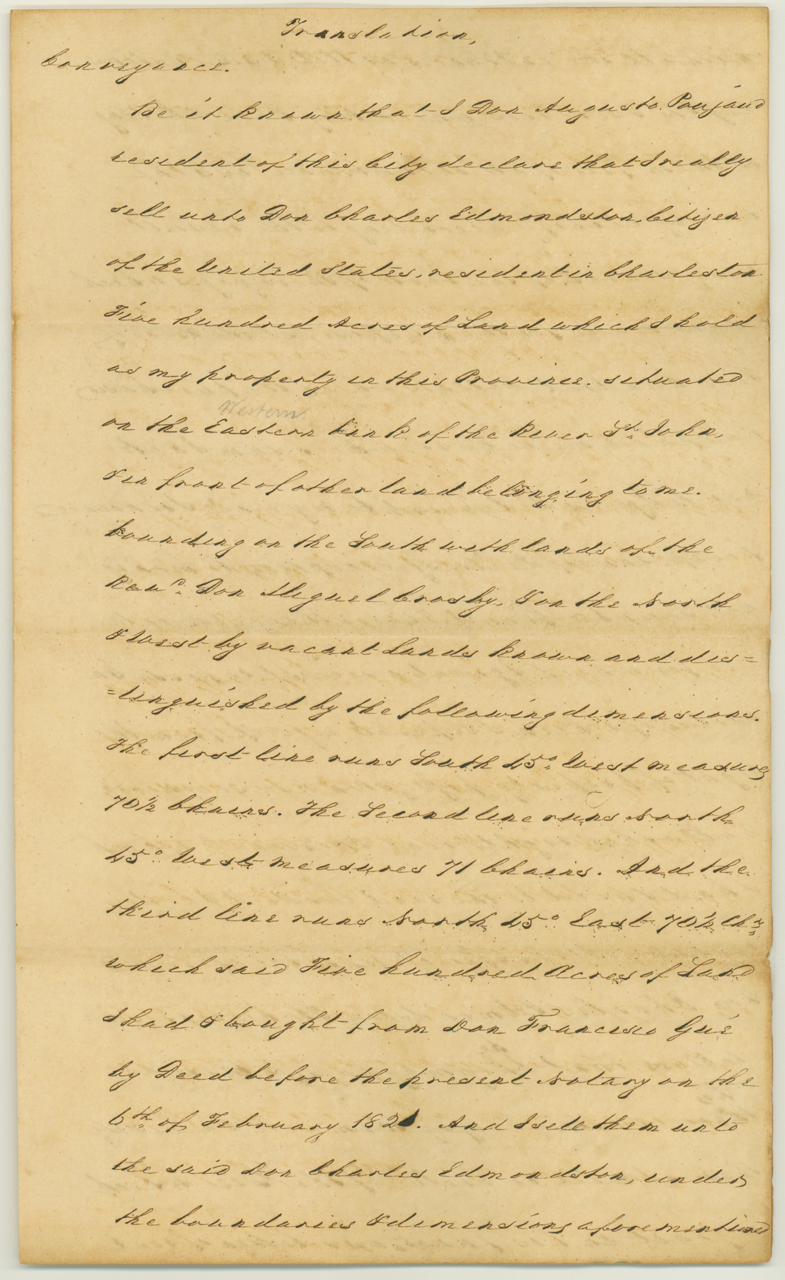 Translation,
Conveyance.
Be it known that I Don Augusto Poujaud
resident of this City declare that I really
sell unto Don Charles Edmondston, Citizen
of the United States, resident in Charleston
Five hundred Acres of Land which I hold
as my property in this Province. situated
Western
on the Eastern bank of the River St. John,
& in front of other land belonging to me.
bounding on the South with lands of the
Revd. Don Miguel Crosby, & on the North
& West by vacant Lands known and dis=
=tinguished by the following dimensions.
The first line runs South 45° West measures
70½ Chains. The Second line runs North
45° West measures 71 Chains. And the
third line runs North 45° East 70½ Chs
which said Five hundred Acres of Land
I had & bought from Don Francisco Gué
by Deed before the present Notary on the
6th of February 1821. And I sell them unto
the said Don Charles Edmondston, under
the boundaries & dimensions aforementioned